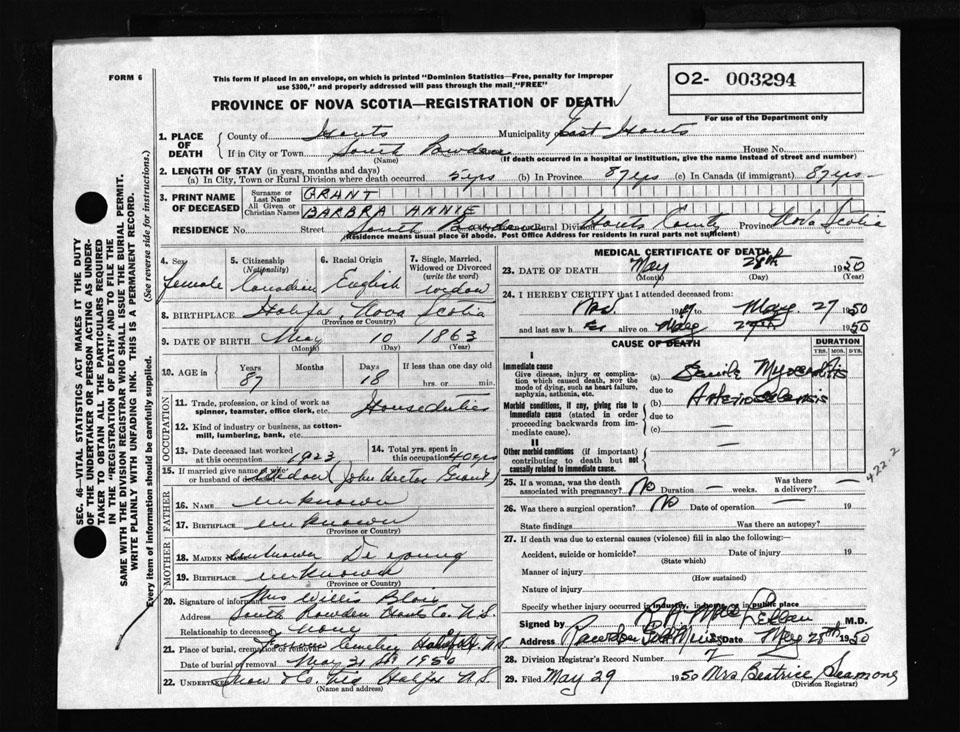 FORM 6
This form if placed in an envelope, on which is printed "Dominion Statistics—Free, penalty for improper
use $300," and properly addressed will pass through the mail, "FREE"
O2- 003294
For use of the Department only
PROVINCE OF NOVA SCOTIA—REGISTRATION OF DEATH
1. PLACE OF DEATH County of Hants Municipality of East Hants
If in City or Town South Rawdon House No.
(Name) (If death occurred in a hospital or institution, give the name instead of street and number)
2. LENGTH OF STAY (in years, months and days)
(a) In City, Town or Rural Division where death occurred 5 yrs (b) In Province 87 yrs (c) In Canada (if immigrant) 87 yrs
3. PRINT NAME OF DECEASED Surname or Last Name GRANT
All Given or Christian Names BARBRA ANNIE
RESIDENCE No. Street South Rawdon or Rural Division Hants County Province Nova Scotia
(Residence means usual place of abode. Post Office Address for residents in rural parts not sufficient)
4. Sex Female
5. Citizenship (Nationality) Canadian
6. Racial Origin English
7. Single, Married, Widowed or Divorced (write the word) widow
8. BIRTHPLACE Halifax, Nova Scotia
(Province or Country)
9. DATE OF BIRTH May 10 1863
(Month) (Day) (Year)
10. AGE in Years 87 Months Days 18 If less than one day old hrs. or min.
OCCUPATION
11. Trade, profession, or kind of work as spinner, teamster, office clerk, etc. House duties
12. Kind of industry or business, as cotton-mill, lumbering, bank, etc.
13. Date deceased last worked at this occupation 1923
14. Total yrs. spent in this occupation 40 yrs
15. If married give name of wife or husband of deceased (John Hector Grant)
FATHER
16. NAME unknown
17. BIRTHPLACE unknown
(Province or Country)
MOTHER
18. MAIDEN NAME unknown De Young
19. BIRTHPLACE unknown
(Province or Country)
20. Signature of informant Mrs Willis Blois
Address South Rawdon Hants Co. N.S.
Relationship to deceased None
21. Place of burial, cremation or removal Cemetery Halifax N.S.
Date of burial or removal May 31 st 1950
22. Undertaker Snow & Co. Ltd Halifax N.S.
(Name and address)
MEDICAL CERTIFICATE OF DEATH
23. DATE OF DEATH May 28th 1950
(Month) (Day)
24. I HEREBY CERTIFY that I attended deceased from:
Nov. 1947 to May 27 1950
and last saw h er alive on May 27th 1950
CAUSE OF DEATH
DURATION
YRS. MOS. DYS.
I
Immediate cause
Give disease, injury or complication which caused death, not the mode of dying, such as heart failure, asphyxia, asthenia, etc.
(a) Senile Myocarditis
due to
Morbid conditions, if any, giving rise to immediate cause (stated in order proceeding backwards from immediate cause).
(b) Arteriosclerosis
due to
(c) —
II
Other morbid conditions (if important) contributing to death but not causally related to immediate cause.
—
—
422.2
25. If a woman, was the death associated with pregnancy? No Duration — weeks. Was there a delivery? —
26. Was there a surgical operation? No Date of operation — 19
State findings Was there an autopsy?
27. If death was due to external causes (violence) fill in also the following:—
Accident, suicide or homicide? Date of injury 19
(State which)
Manner of injury
(How sustained)
Nature of injury
Specify whether injury occurred in industry, in home, or in public place
Signed by M.D.
Address Rawdon Gold Mines Date May 28th 1950
28. Division Registrar's Record Number 7
29. Filed May 29 1950 Mrs Beatrice Seamons
(Division Registrar)
SEC. 46—VITAL STATISTICS ACT MAKES IT THE DUTY
OF THE UNDERTAKER OR PERSON ACTING AS UNDER-
TAKER TO OBTAIN ALL THE PARTICULARS REQUIRED
IN THE "REGISTRATION OF DEATH" AND TO FILE THE
SAME WITH THE DIVISION REGISTRAR WHO SHALL ISSUE THE BURIAL PERMIT.
WRITE PLAINLY WITH UNFADING INK. THIS IS A PERMANENT RECORD.
Every item of information should be carefully supplied. (See reverse side for instructions.)